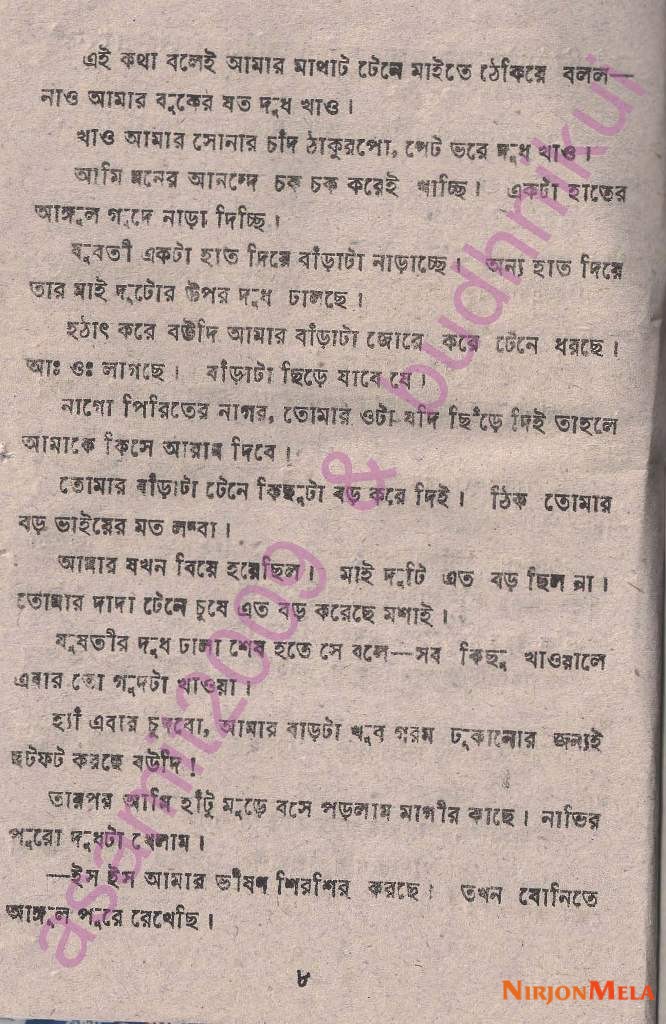 এই কথা বলেই আমার মাথাট টেনে মাইতে ঠেকিয়ে বলল—
নাও আমার বুকের যত দুধ খাও।
খাও আমার সোনার চাঁদ ঠাকুরপো, পেট ভরে দুধ খাও।
আমি মনের আনন্দে চক চক করেই খাচ্ছি। একটা হাতের
আঙ্গুল গুদে নাড়া দিচ্ছি।
যুবতী একটা হাত দিয়ে বাঁড়াটা নাড়াচ্ছে। অন্য হাত দিয়ে
তার মাই দুটোর উপর দুধ ঢালছে।
হঠাৎ করে বউদি আমার বাঁড়াটা জোরে করে টেনে ধরছে।
আঃ ওঃ লাগছে। বাঁড়াটা ছিড়ে যাবে যে।
নাগো পিরিতের নাগর, তোমার ওটা যদি ছিঁড়ে দিই তাহলে
আমাকে কিসে আরাম দিবে।
তোমার বাঁড়াটা টেনে কিছুটা বড় করে দিই। ঠিক তোমার
বড় ভাইয়ের মত লম্বা।
আমার যখন বিয়ে হয়েছিল। মাই দুটি এত বড় ছিল না।
তোমার দাদা টেনে চুষে এত বড় করেছে মশাই।
যুবতীর দুধ ঢালা শেষ হতে সে বলে—সব কিছু খাওয়ালে
এবার তো গুদটা খাওয়া।
হ্যাঁ এবার চুষবো, আমার বাড়টা খুব গরম ঢুকানোর জন্যই
ছটফট করছে বউদি!
তারপর আমি হাঁটু মুড়ে বসে পড়লাম মাগীর কাছে। নাভির
পুরো দুধটা খেলাম।
—ইস ইস আমার ভীষণ শিরশির করছে। তখন যোনিতে
আঙ্গুল পুরে রেখেছি।
৮
asamit2009 & budhnikui
NIRJONMELA